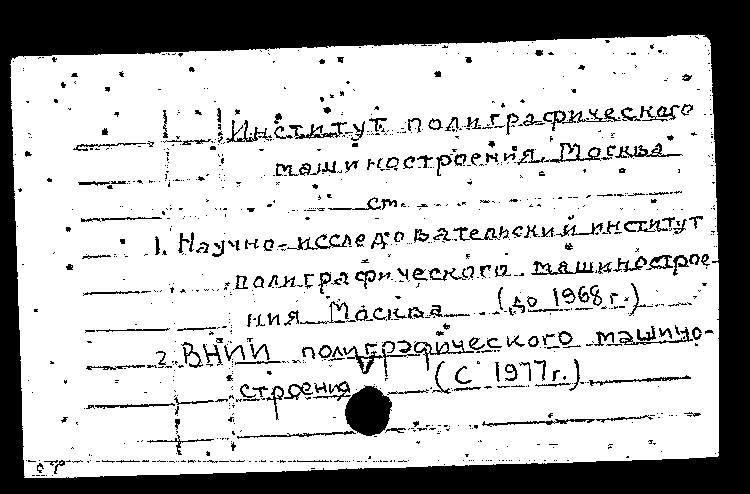 Институт полиграфического
машиностроения. Москва
см.
1. Научно-исследовательский институт
полиграфического машинострое-
ния Москва (до 1968 г.)
2. ВНИИ полиграфического машино-
строения (с 1977 г.)